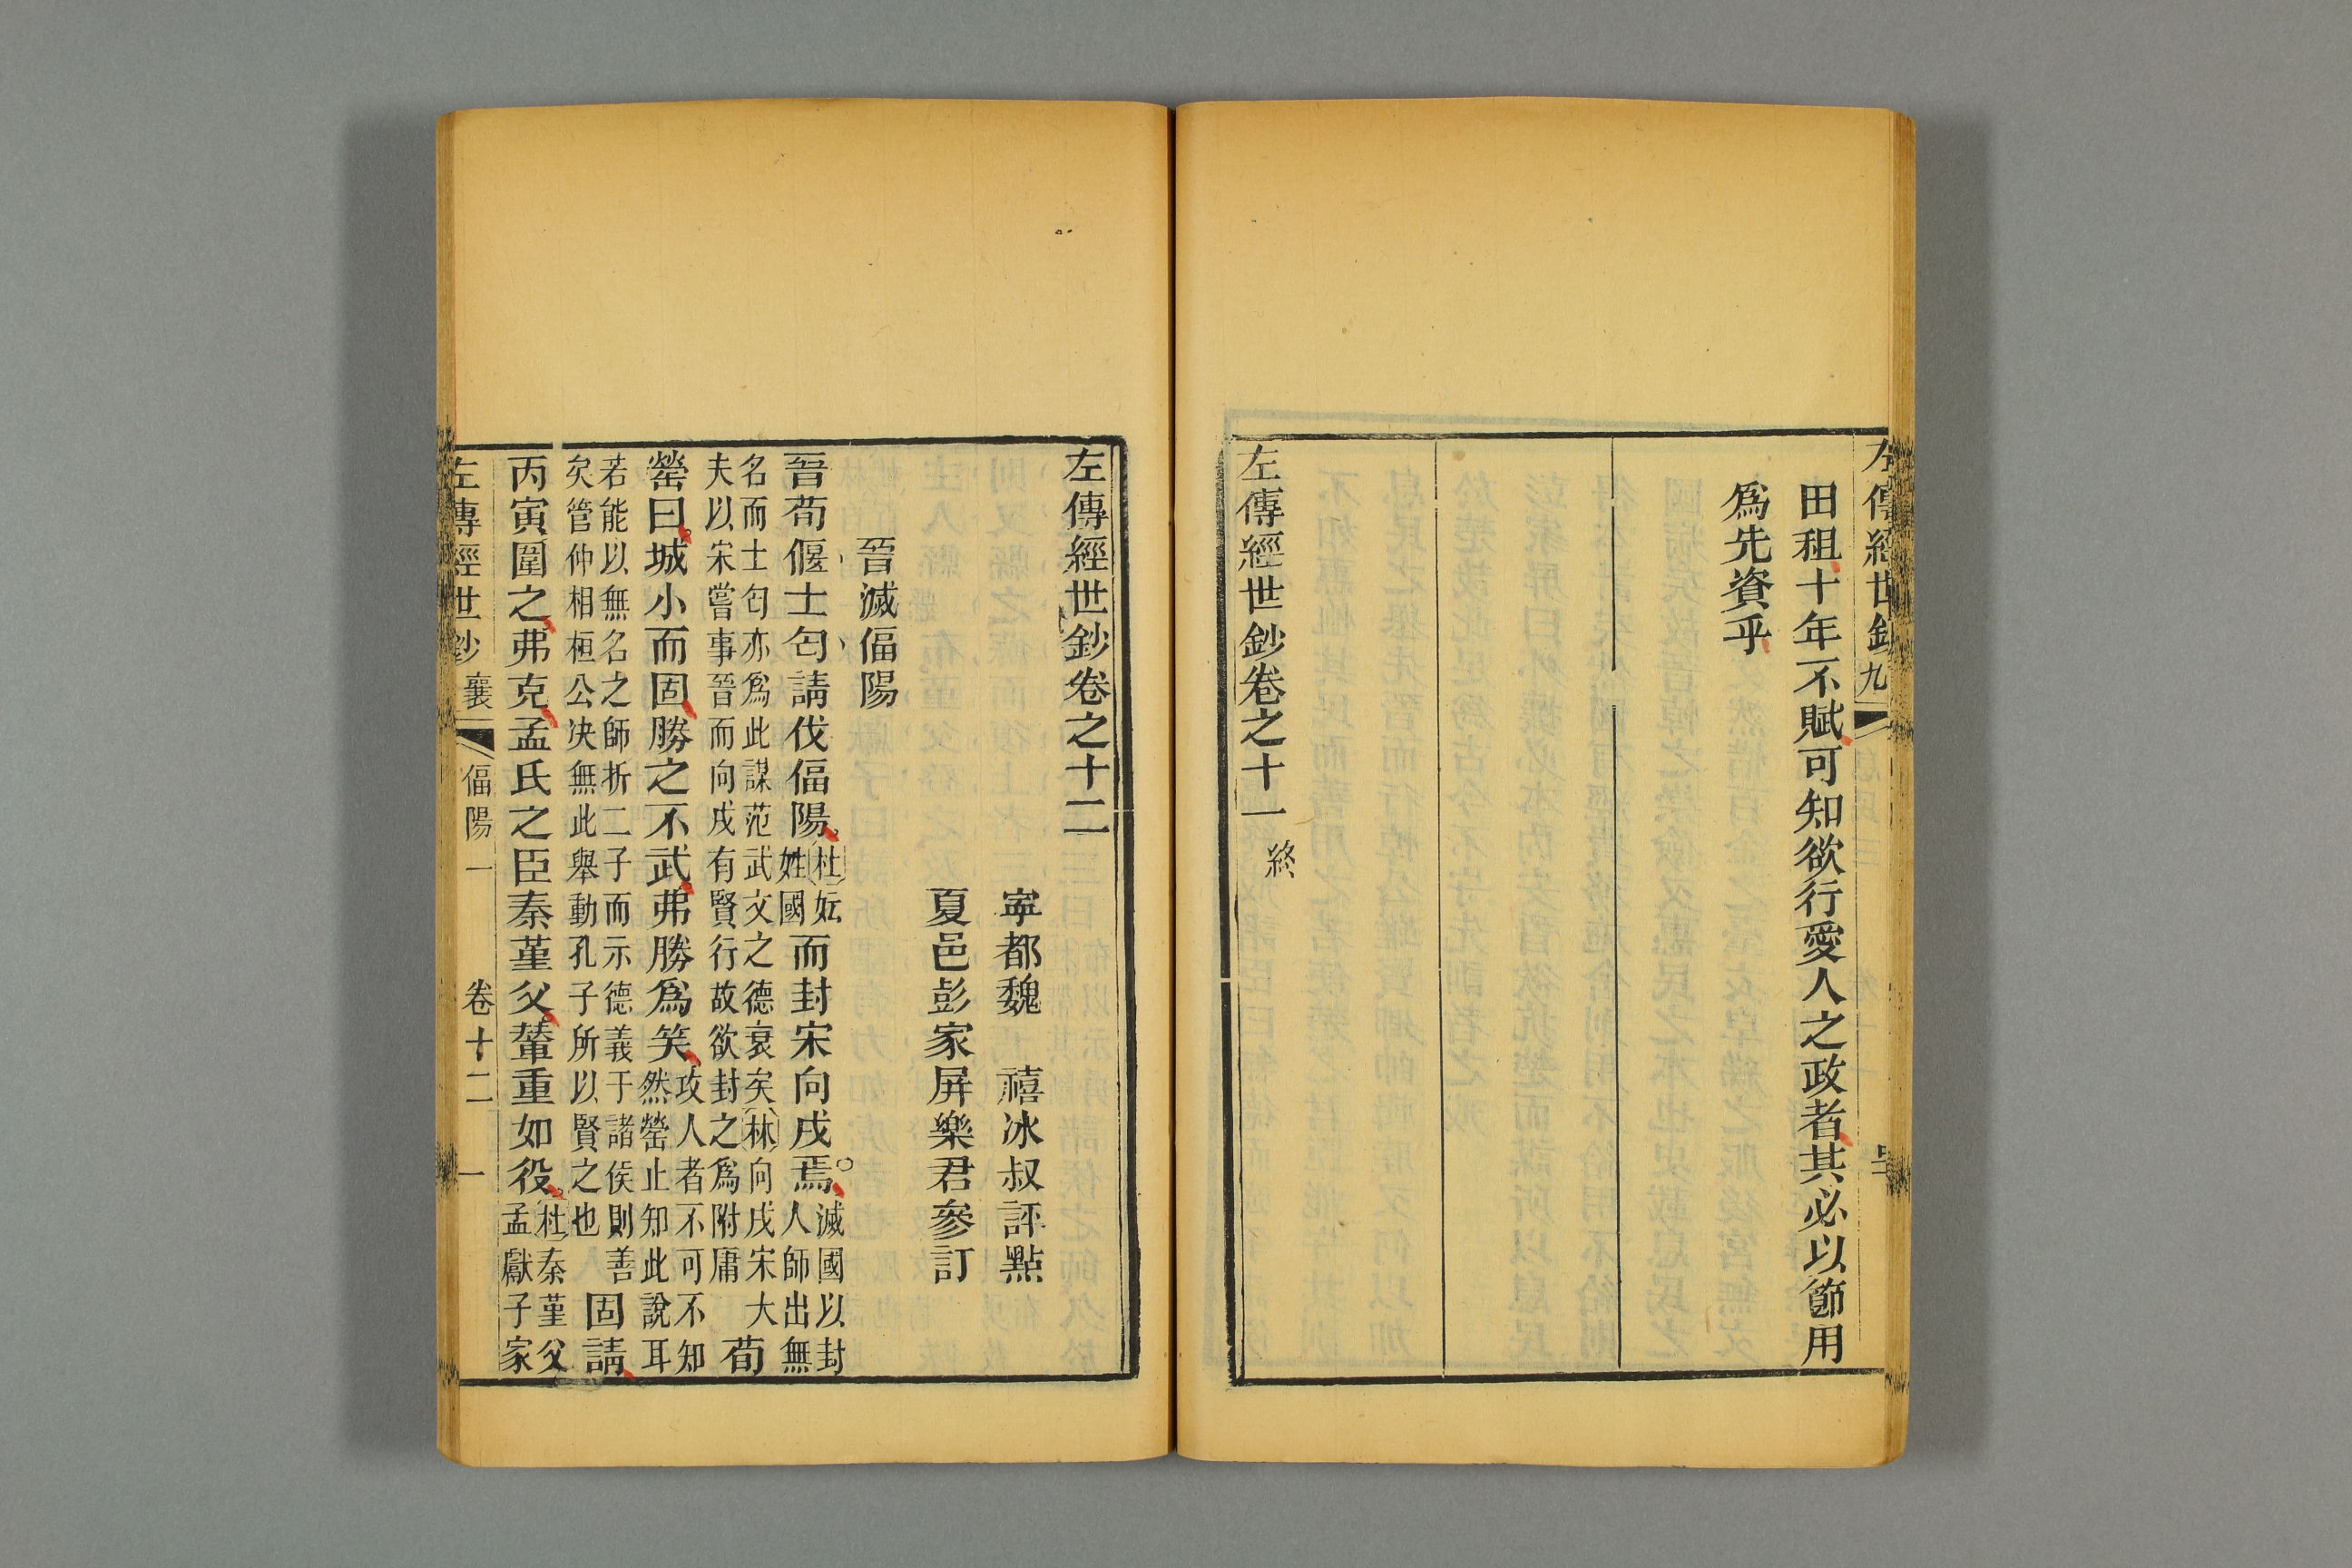 左傳經世鈔 九
田租十年不賦可知欲行愛人之政者其必以節用
爲先資乎
左傳經世鈔卷之十一 終
左傳經世鈔卷之十二
寧都魏 禧冰叔評點
夏邑彭家屏樂君參訂
晉滅偪陽
晉荀偃士匄請伐偪陽杜妘姓國而封宋向戌焉滅國以封人師出無
名而士匄亦爲此謀范武文之德衰矣林向戌宋大
夫以宋嘗事晉而向戌有賢行故欲封之爲附庸荀
罃曰城小而固勝之不武弗勝爲笑攻人者不可不知然罃止知此說耳固請
若能以無名之師折二子而示德義于諸侯則善
矣管仲相桓公决無此舉動孔子所以賢之也
丙寅圍之弗克孟氏之臣秦堇父輦重如役杜秦堇父孟獻子家
左傳經世鈔 襄 偪陽一 卷十二 一